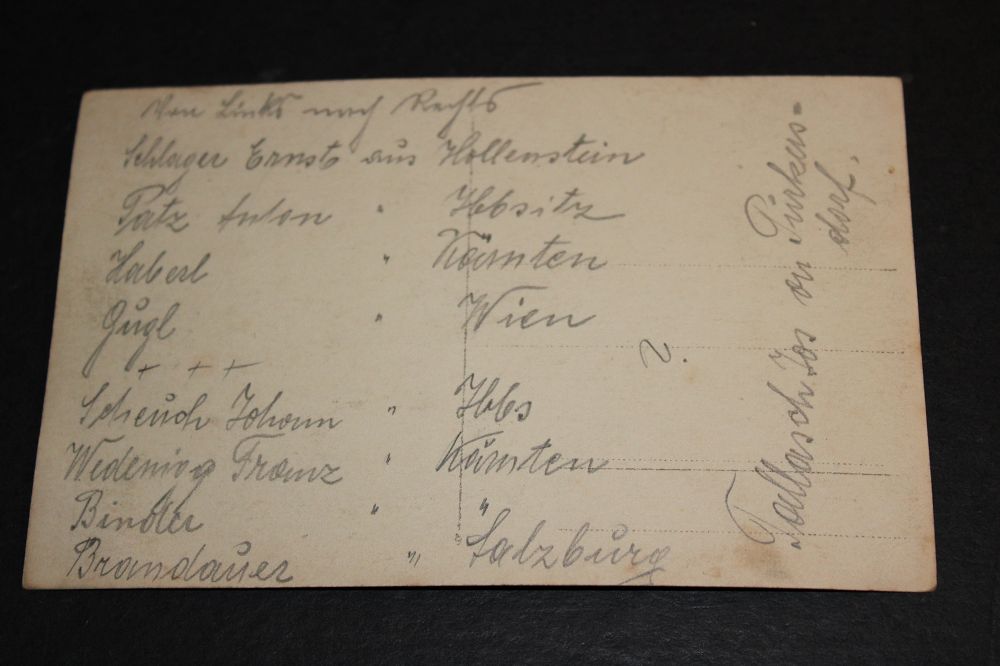 Von Links nach Rechts
Schlager Ernst aus Hollenstein
Patz Anton " Ybbsitz
Haberl " Kärnten
Gugl " Wien
+ + +
Scheuch Johann " Ybbs
Wedenig Franz " Kärnten
Bindler " "
Brandauer " Salzburg
2.
Jos Purkers-
dorf.